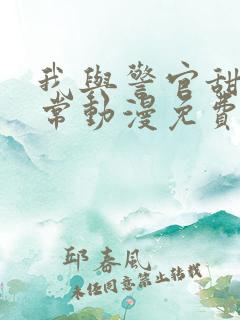 我與警官甜
常動漫免費
邱春風
未经同意禁止转载